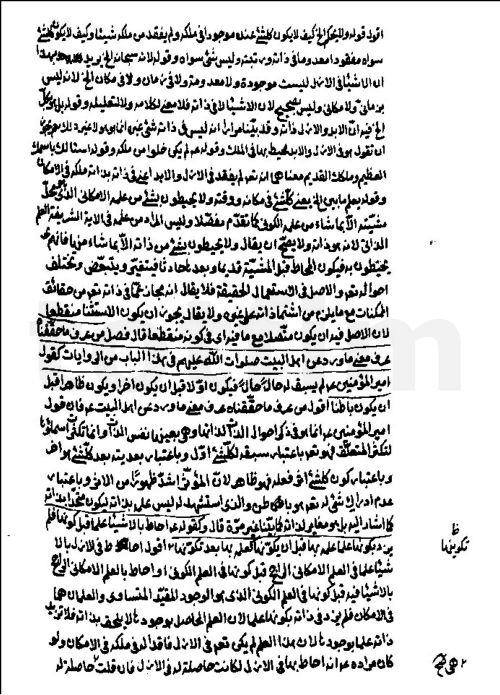 اقول قوله وللحكم الخ كيف لا يكون كل شئ عنده موجودا فى ملكه ولم يفقد من ملكه شيئا وكيف لا يكون كل شئ
سواه مفقودا معدوما فى ذاته ورتبته وليس شئ سواه وقوله لانه سبحانه الخ يريد به
ان الاشياء فى الازل ليست موجودة ولا معدومة ولا فى زمان ولا فى مكان الخ لانه ليس
بزمانى ولا مكانى وليس بصحيح لان الاشياء لا فى ذاته فلا معنى لكلامه ولا لتعليله وقوله بل
الخ فيه ان الابد والازل ذاته وقد بينا مرارا انه ليس فى ذاته شئ غير
ان تقول هو فى الازل والابد محيط بها فى الملك وقوله لم يكن خلوا من ملكه وقوله اسالك باسمك
العظيم وملكك القديم معناهما انه تعالى لم يفقد فى الازل والابد اعنى فى ذاته بذاته ملكه فى الامكان
وقوله يعلم ما بين الخ يعنى كل شئ فى مكانه ووقته ولا يحيطون بشئ من علمه الامكانى الذى
مشيته الا بما شاء من علمه الكونى كما تقدم مفصلا وليس المراد من علمه فى الاية الشريفة العلم
الذاتى لانه هو ذاته ولا يصح ان يقال ولا يحيطون بشئ من ذاته الا بما شاء منها فانهم
يحيطون به فيكون المحاط قبل المشية قديما وبعدها حادثا فيتغير ويتبعض وتختلف
احواله تعالى والاصل فى الاستعمال الحقيقة فلا يقال انه مجاز عما فى ذاته تعالى من حقائق
الممكنات مع ما يلزم من اشتمال ذاته على غيره ولا يقال يجوز ان يكون الاستثناء منقطعا
لان الاصل فيه ان يكون متصلا مع ما فيه اى فى كونه منقطعا قال فصل من عرف ما حققناه
عرف معنى ما ورد عن اهل البيت صلوات الله عليهم فى هذا الباب من الروايات كقول
امير المؤمنين لم يسبق له حال حالا فيكون اولا قبل ان يكون اخرا ويكون ظاهرا قبل
ان يكون باطنا اقول من عرف ما حققناه عرف معنى ما ورد عن اهل البيت فان قول
امير المؤمنين انما هو فى ذكر احوال الذات لذاتها وهى بعينها نفس الذات وانما تكثر اسماؤها
لتكثر المتعلق فهو تعالى باعتبار سبقه لكل شئ اول وباعتبار بعديته بعد كل شئ هو اخر
وباعتبار كون كل شئ اثر فعله فهو ظاهر لان المؤثر اشد ظهورا من الاثر وباعتبار
عدم ادراك شئ له تعالى هو باطن والذى استشهد له ليس على
كما اشار اليه بل هو مغاير لذاته كما بيناه غير مرة قال وكقوله احاط بالاشياء علما قبل كونها فلم
يزدد بكونها علما علمه بها قبل ان يكونها كعلمه بها بعد تكوينها اقول احاط فى الازل بالا
شياء علما فى العلم الامكانى الراجح قبل كونها فى العلم الكونى او احاط بالعلم الامكانى الراجح
بالاشياء فيه قبل كونها فى العلم الكونى الذى هو الوجود المقيد المتساوى والعلمان هما
فى الامكان فلم يزدد فى ذاته بكونها علما لان العلم الحاصل بوجودها لا يلحق بذاته فلا تزيد
ذاته علما بوجودها لان هذا العلم لم يكن تعالى فى الازل فاقدا له فى ملكه فى الامكان ولو
كان مراده انه احاط بها فى الازل لكانت حاصلة له فى الازل فان قلت حاصلة له
ظ
تكوينها